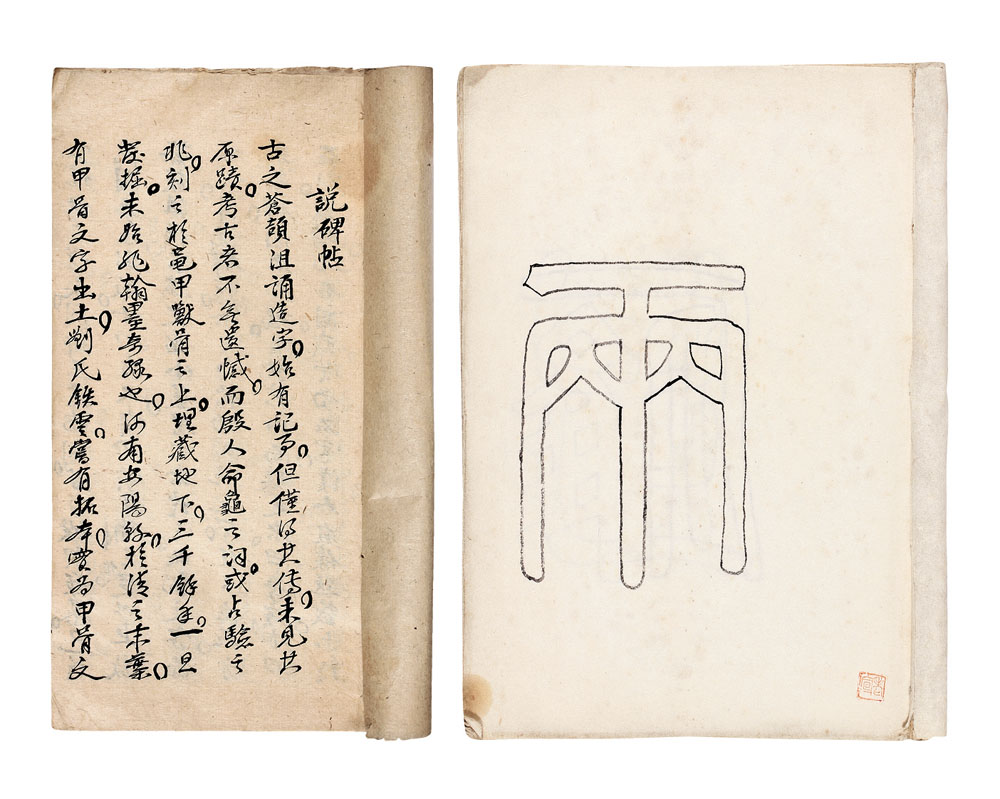 説碑帖
古之蒼頡沮誦造字。始有記事。但僅得其傳。未見其
原蹟。考古者不無遺憾。而殷人命龜之詞。或占驗之
兆。刻之於龜甲獸骨之上。埋藏地下。三千餘年。一旦
發掘。未始非翰墨奇緣也。河南安陽縣。於清之末葉。
有甲骨文字出土。劉氏鉄雲。嘗有拓本。實為甲骨文
兩